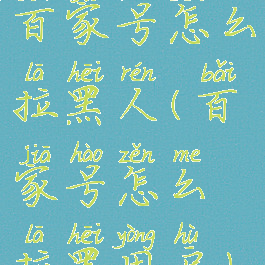 百家号怎么
lā hēi rén bǎi
拉黑人(百
jiā hào zěn me
家号怎么
lā hēi yòng hù
拉黑用户)